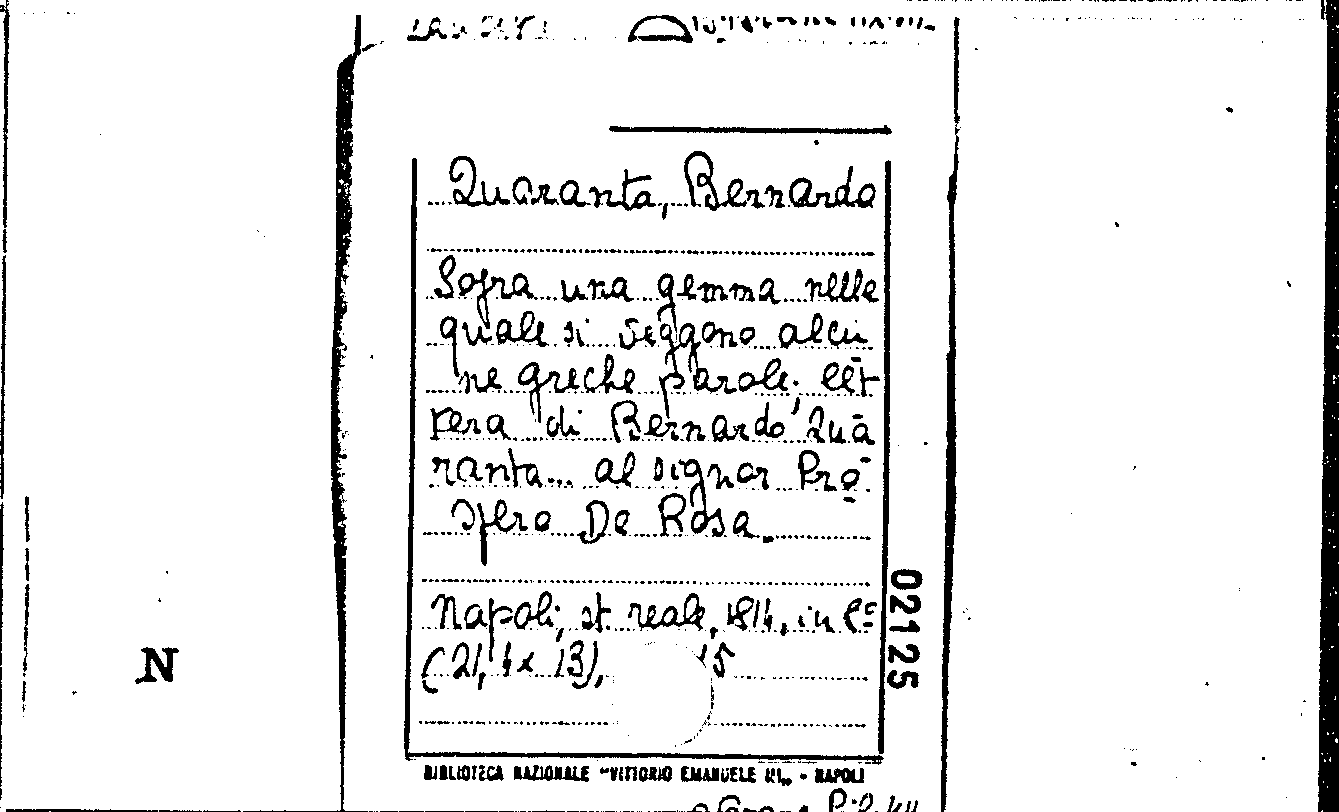 Quaranta, Bernardo
Sopra una gemma nelle
quale si veggono alcu
ne greche parole; let
tera di Bernardo Qua
ranta... al signor Pro
spero De Rosa.
Napoli, st. reale, 1814, in 8°
(21,4x 13), 15
02125
N
BIBLIOTECA NAZIONALE "VITTORIO EMANUELE III" - NAPOLI